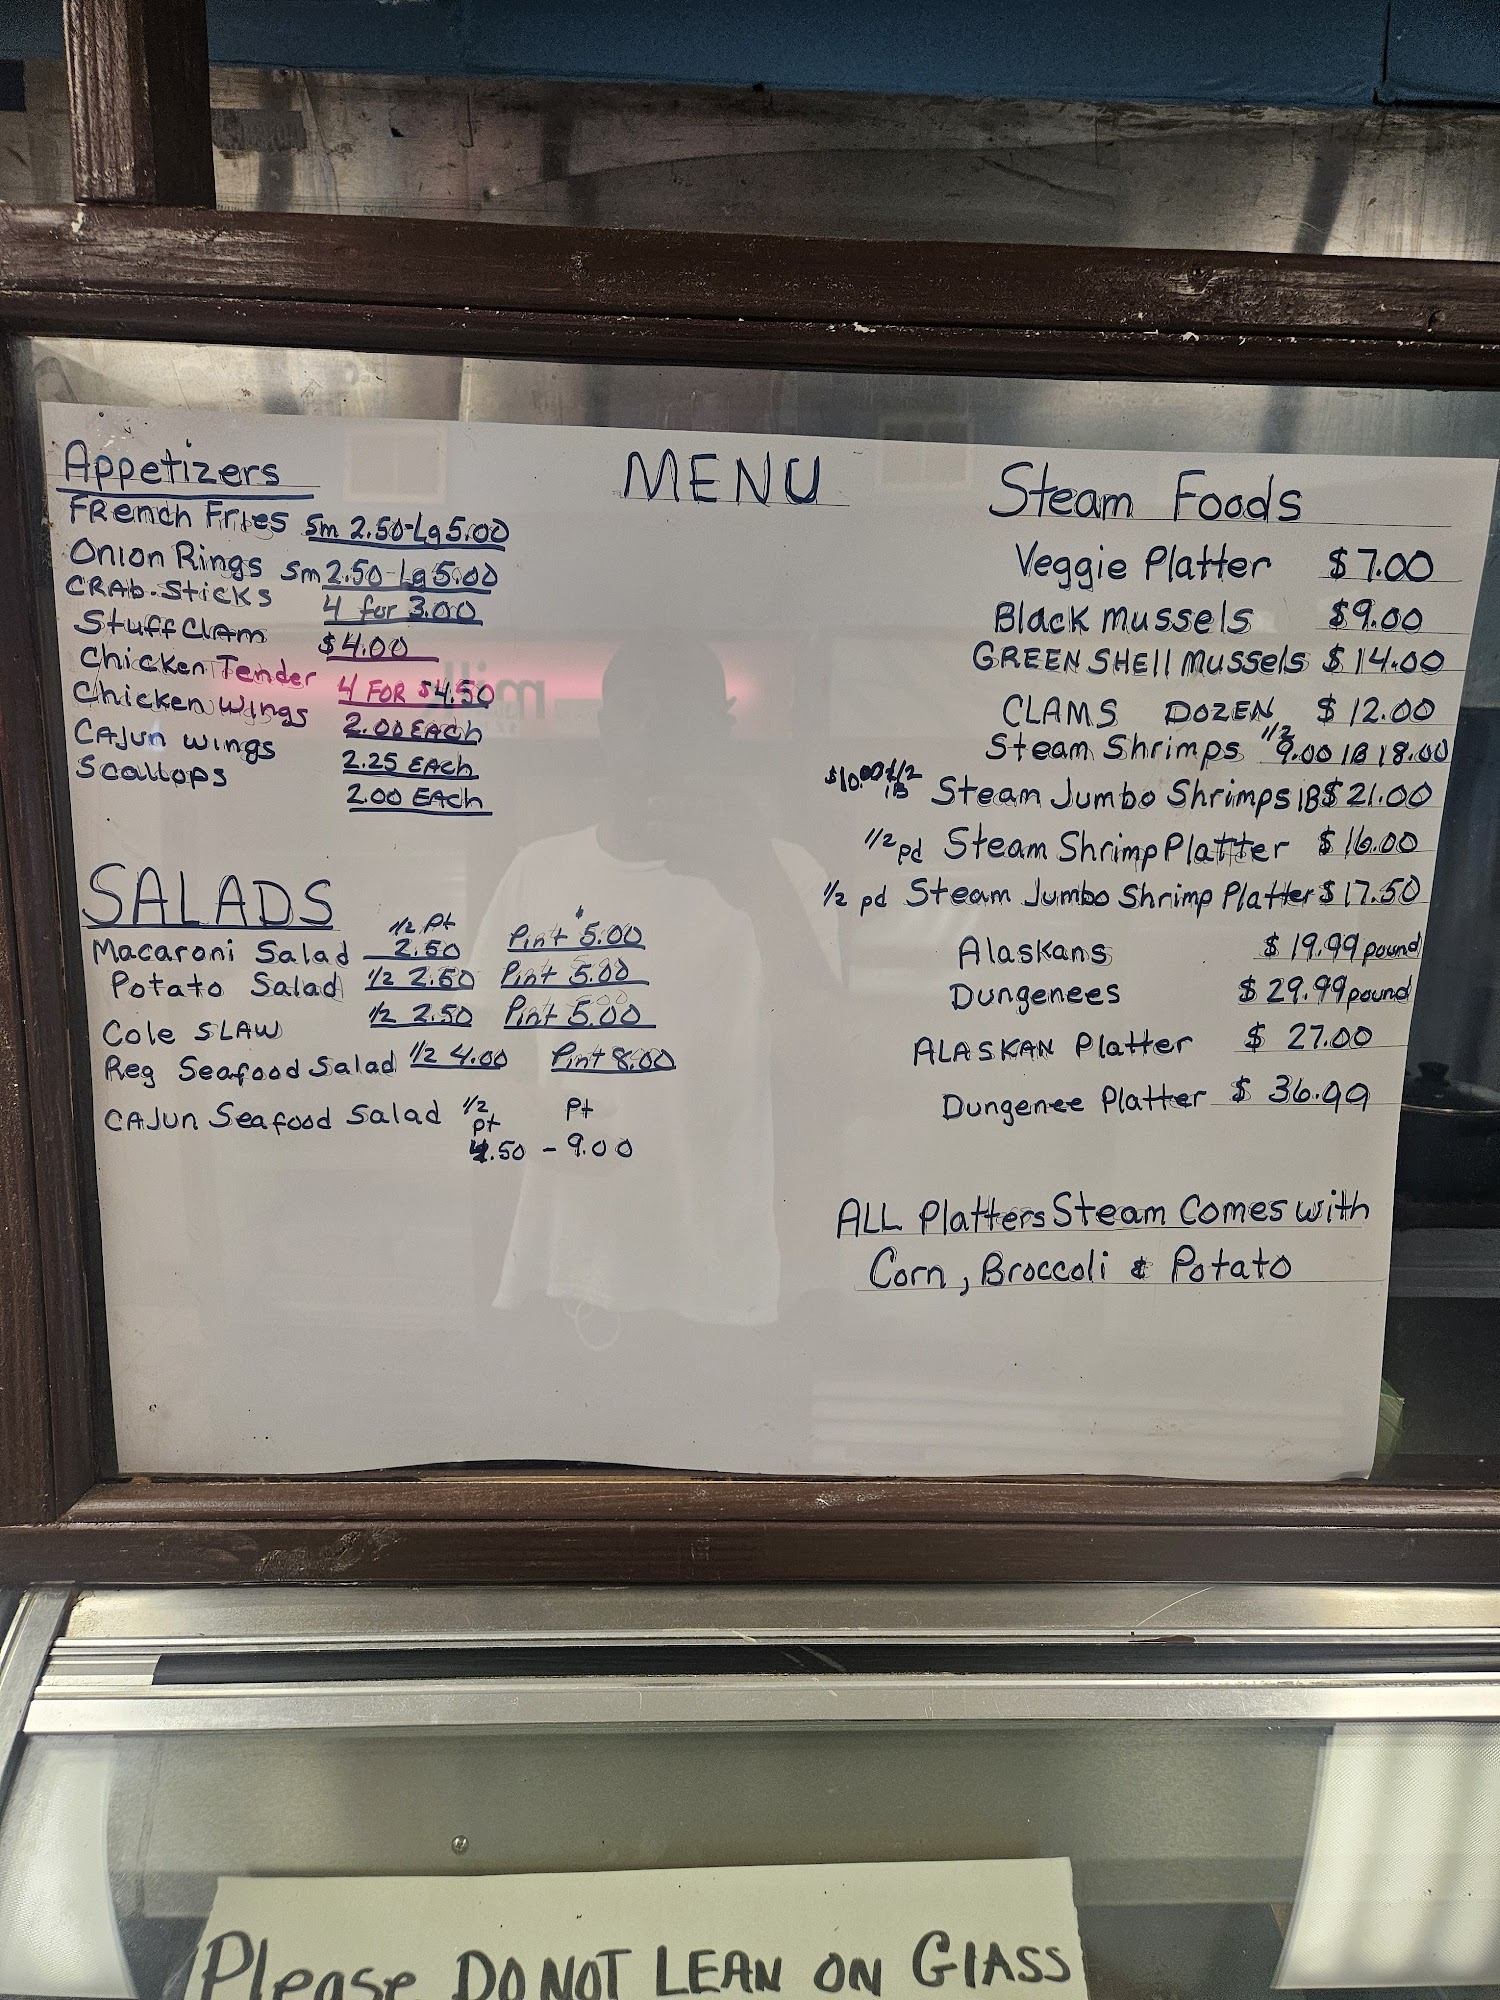 MENU
Appetizers
FRench Fries Sm 2.50-Lg 5.00
Onion Rings Sm 2.50-Lg 5.00
CRAb-Sticks 4 for 3.00
Stuff Clam $4.00
Chicken Tender 4 FOR $4.50
Chicken Wings 2.00 EAch
CAJun wings 2.25 EAch
Scallops 2.00 EAch
SALADS
Macaroni Salad 1/2 Pt 2.50 Pint $5.00
Potato Salad 1/2 2.50 Pint 5.00
Cole SLAW 1/2 2.50 Pint 5.00
Reg Seafood Salad 1/2 4.00 Pint 8.00
CAJun Seafood Salad 1/2 pt Pt
4.50 - 9.00
Steam Foods
Veggie Platter $7.00
Black mussels $9.00
GREEN SHELL mussels $14.00
CLAMS DOZEN $12.00
Steam Shrimps 1/2 9.00 lB 18.00
$10.00 1/2 lB Steam Jumbo Shrimps lB $21.00
1/2 pd Steam Shrimp Platter $16.00
1/2 pd Steam Jumbo Shrimp Platter $17.50
Alaskans $19.99 pound
Dungenees $29.99 pound
ALASKAN Platter $27.00
Dungenee Platter $36.99
ALL Platters Steam Comes with
Corn, Broccoli & Potato
Please DO NOT LEAN ON GlASS